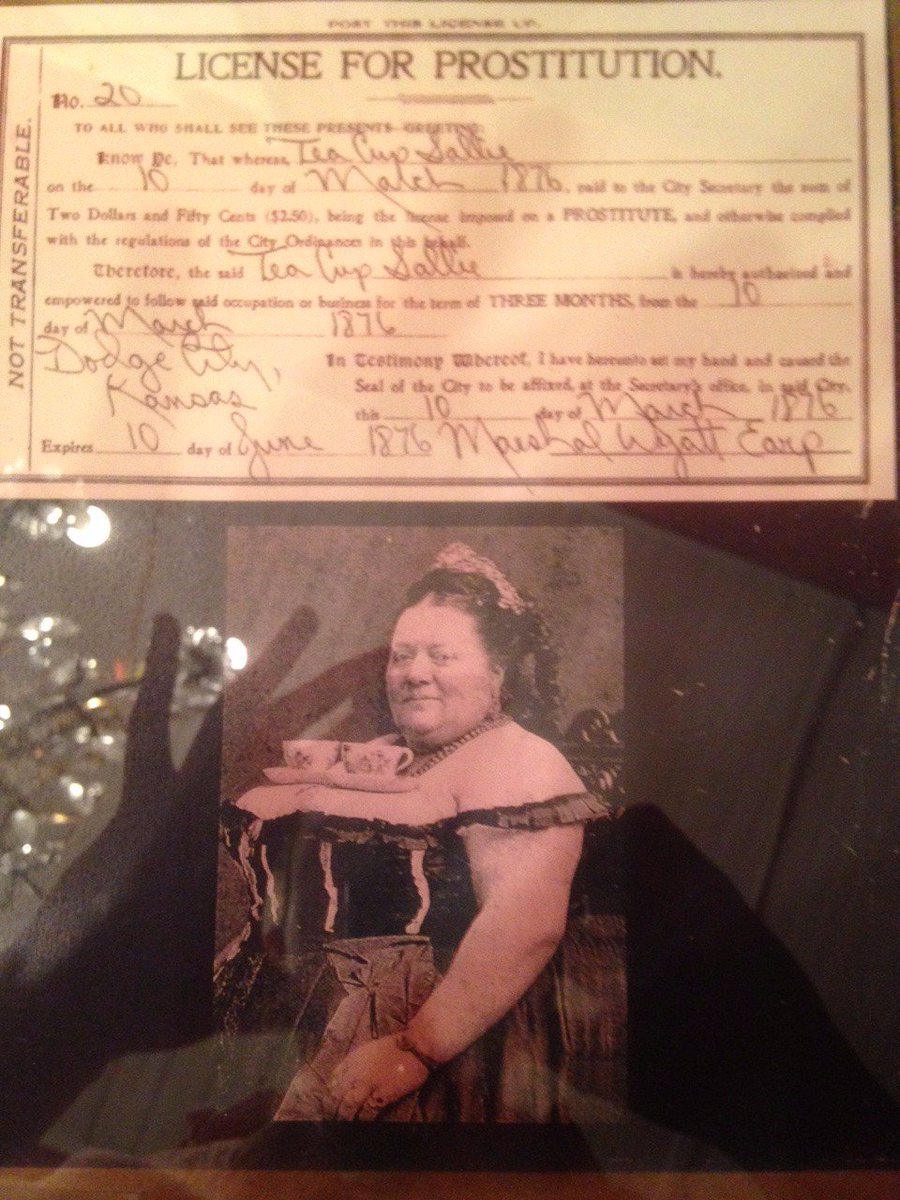 POST THIS LICENSE UP.
LICENSE FOR PROSTITUTION.
No. 20
TO ALL WHO SHALL SEE THESE PRESENTS GREETING:
Know Ye, That whereas, Tea Cup Sallie
on the 10 day of March 1876, paid to the City Secretary the sum of
Two Dollars and Fifty Cents ($2.50), being the license imposed on a PROSTITUTE, and otherwise complied
with the regulations of the City Ordinances in this behalf.
Therefore, the said Tea Cup Sallie is hereby authorized and
empowered to follow said occupation or business for the term of THREE MONTHS, from the 10
day of March 1876
Dodge City,
Kansas
In Testimony Whereof, I have hereunto set my hand and caused the
Seal of the City to be affixed, at the Secretary's office, in said City,
this 10 day of March 1876
Expires 10 day of June 1876 Marshal Wyatt Earp
NOT TRANSFERABLE.